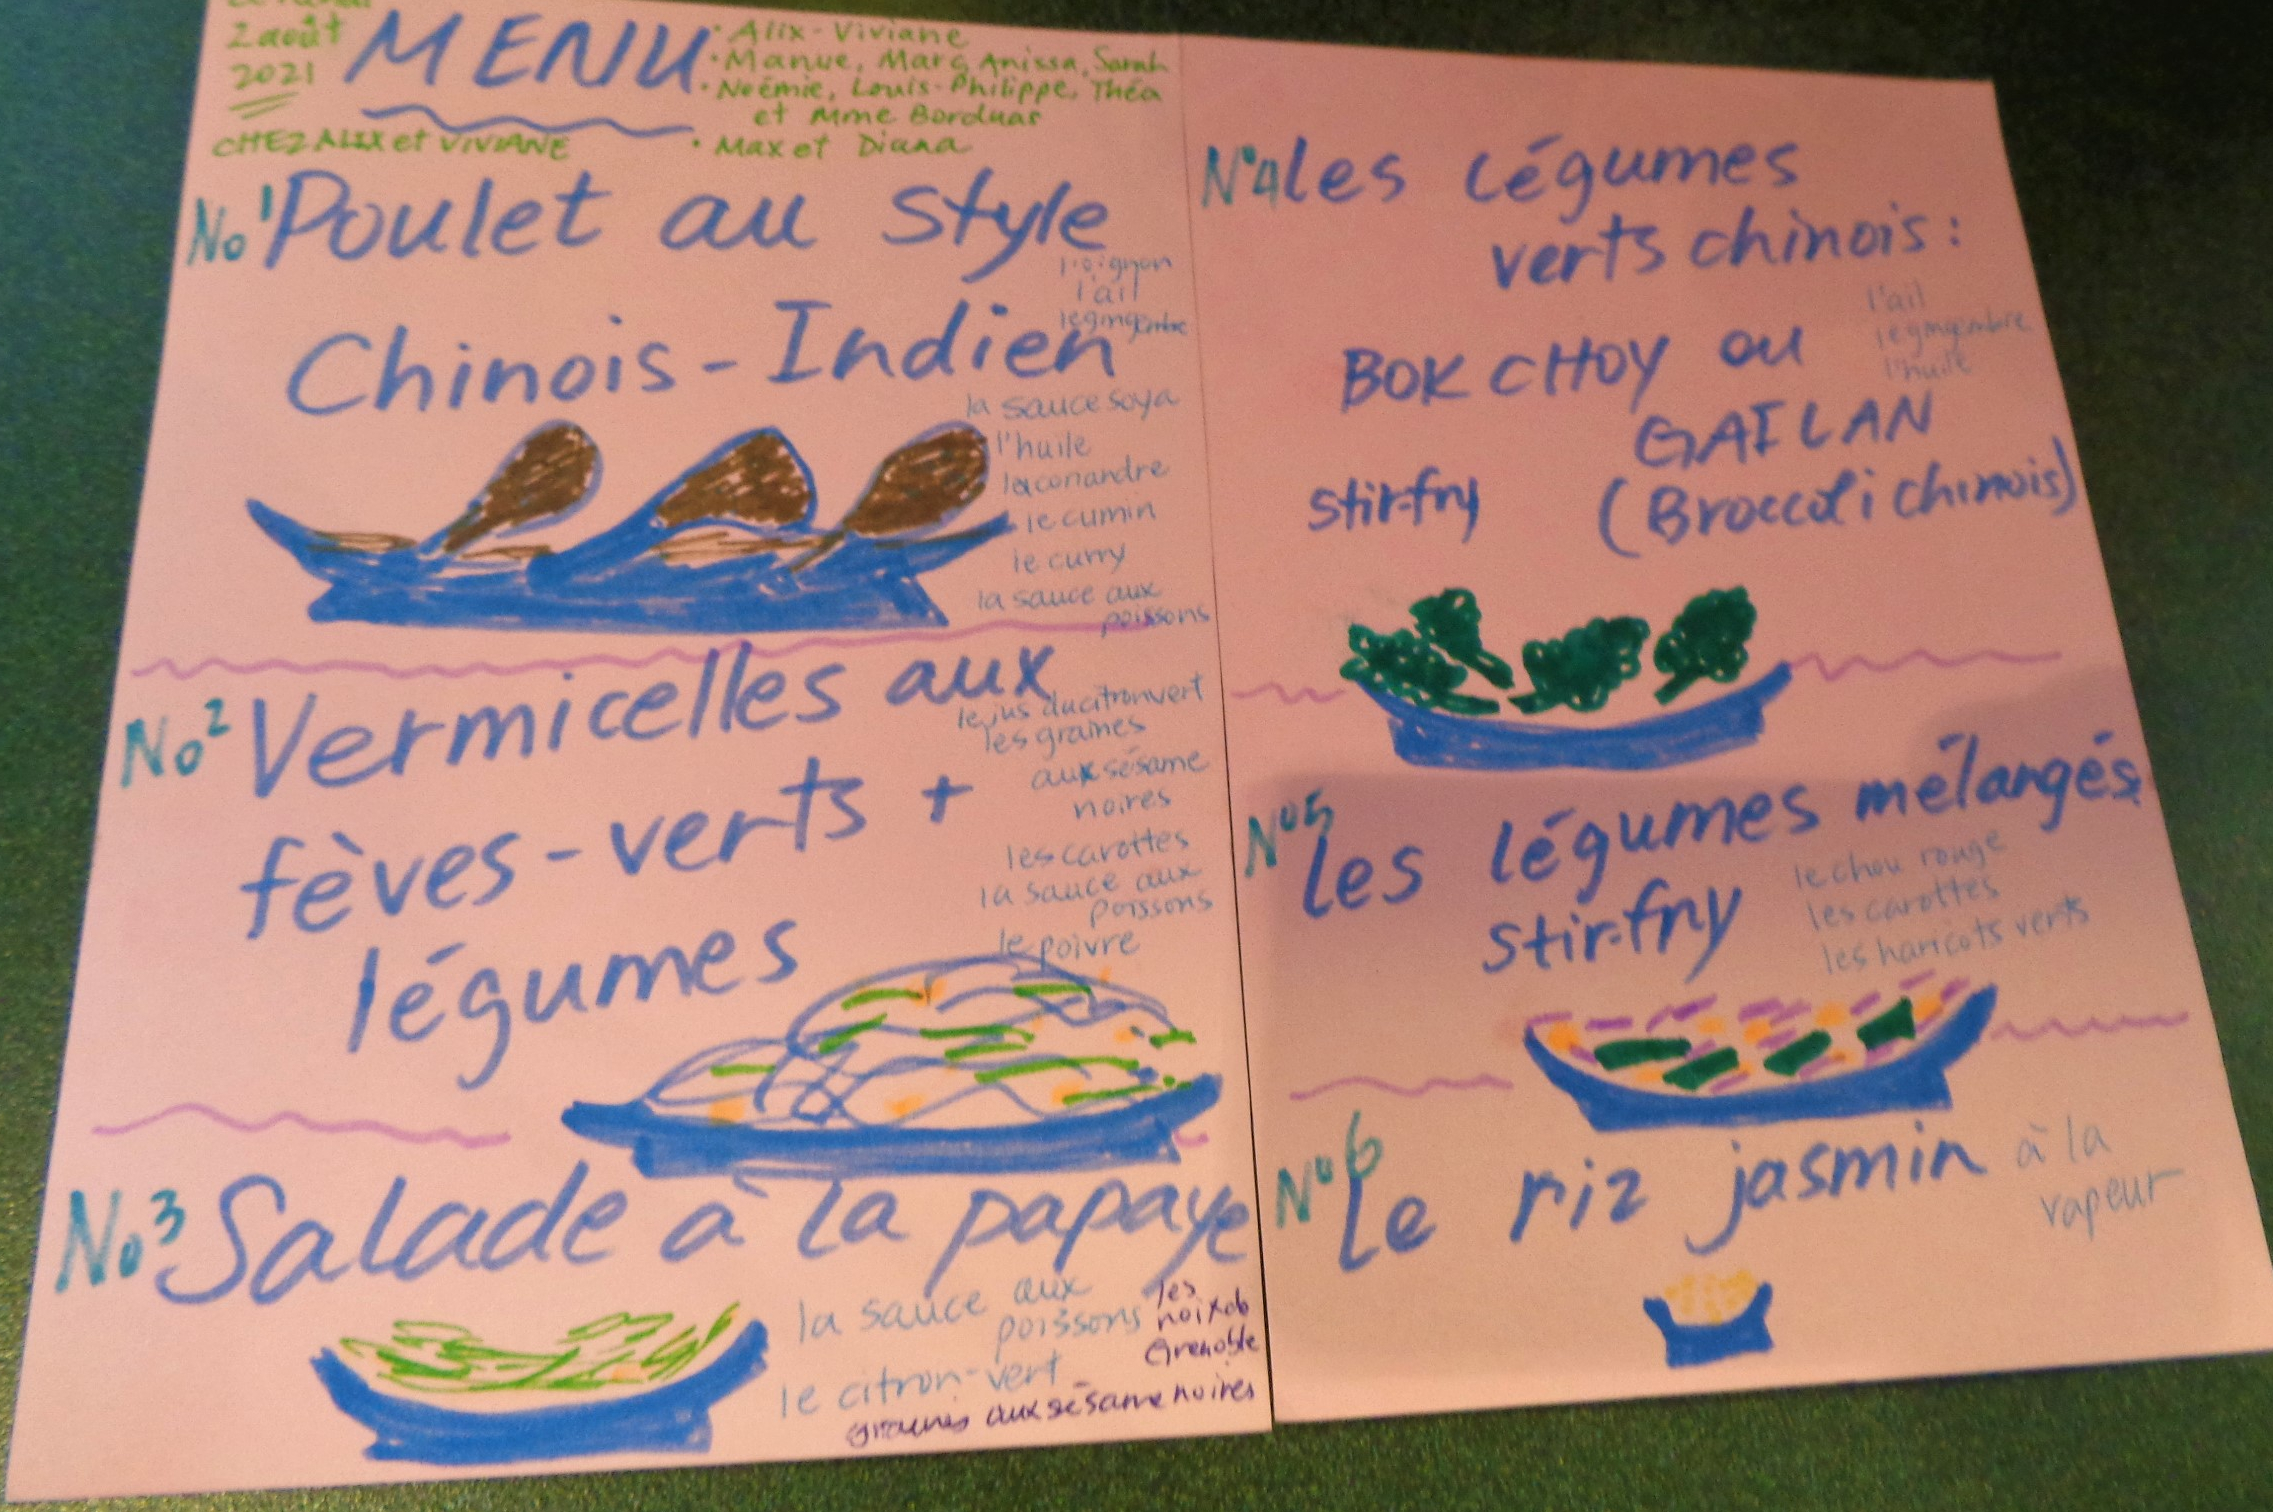 2 août
2021
MENU
CHEZ ALIX et VIVIANE
• Alix-Viviane
• Manue, Marc, Anissa, Sarah
• Noémie, Louis-Philippe, Théa
et Mme Borduas
• Max et Diana
No 1 Poulet au style
Chinois-Indien
l'oignon
l'ail
le gingembre
la sauce soya
l'huile
la coriandre
le cumin
le curry
la sauce aux
poissons
No 2 Vermicelles aux
fèves-verts +
légumes
le jus du citron vert
les graines
aux sésame
noires
les carottes
la sauce aux
poissons
le poivre
No 3 Salade à la papaye
la sauce aux
poissons
le citron-vert
les
noix de
Grenoble
graines aux sésame noires
No 4 les légumes
verts chinois:
BOK CHOY ou
GAI LAN
stir-fry (Broccoli chinois)
l'ail
le gingembre
l'huile
No 5 les légumes mélangés
stir-fry
le chou rouge
les carottes
les haricots verts
No 6 Le riz jasmin à la
vapeur